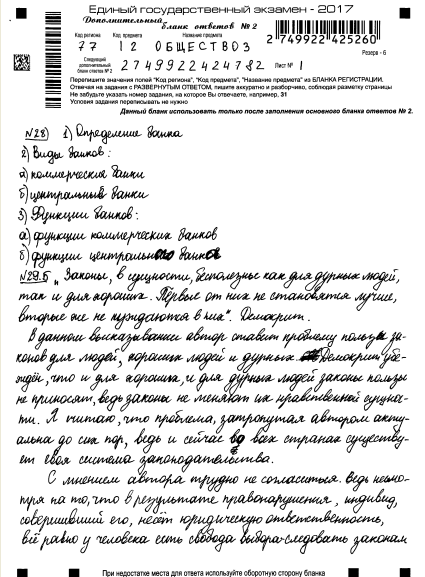 Единый государственный экзамен - 2017
Дополнительный бланк ответов № 2
Код региона Код предмета Название предмета
77 12 ОБЩЕСТВОЗ
2749922425260
Резерв - 6
Следующий дополнительный бланк ответов № 2
2749922424782 Лист № 1
Перепишите значения полей "Код региона", "Код предмета", "Название предмета" из БЛАНКА РЕГИСТРАЦИИ.
Отвечая на задания с РАЗВЕРНУТЫМ ОТВЕТОМ, пишите аккуратно и разборчиво, соблюдая разметку страницы
Не забудьте указать номер задания, на которое Вы отвечаете, например, 31
Условия задания переписывать не нужно
Данный бланк использовать только после заполнения основного бланка ответов № 2.
№28) 1) Определение банка
2) Виды банков:
а) коммерческие банки
б) центральный банки
3) Функции банков:
а) функции коммерческих банков
б) функции центрального банка
№29.5 „Законы, в сущности, бесполезные как для дурных людей,
так и для хороших. Первые от них не становятся лучше,
вторые же не нуждаются в них". Демокрит.
В данном высказывании автор ставит проблему пользы за-
конов для людей, хороших людей и дурных. Демокрит убе-
ждён, что и для хороших, и для дурных людей законы пользы
не приносят, ведь законы не меняют их нравственной сущнос-
ти. Я считаю, что проблема, затронутая автором акту-
альна до сих пор, ведь и сейчас во всех странах существу-
ет своя система законодательства.
С мнением автора трудно не согласиться. Ведь несмо-
тря на то, что в результате правонарушения, индивид,
совершивший его, несёт юридическую ответственность,
всё равно у человека есть свобода выбора-следовать законам
При недостатке места для ответа используйте оборотную сторону бланка